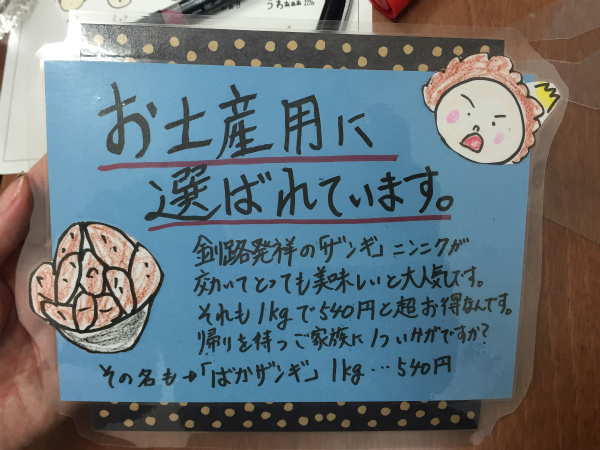 うわぁぁぁ
お土産用に
選ばれています。
釧路発祥の「ザンギ」ニンニクが
効いてとっても美味しいと大人気です。
それも1kgで540円と超お得なんです。
帰りを待つご家族に1ついかがですか？
その名も→「ばかザンギ」1kg…540円